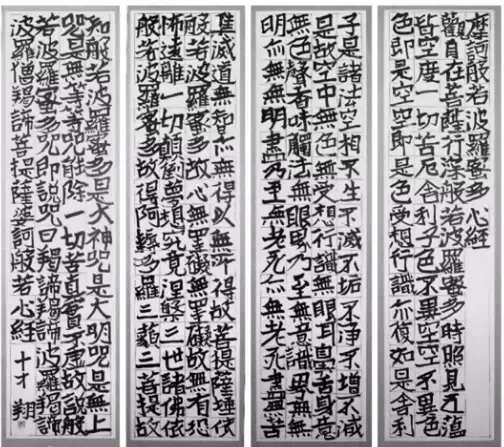 摩訶般若波羅蜜多心經
觀自在菩薩行深般若波羅蜜多時照見五蘊
皆空度一切苦厄舍利子色不異空空不異色
色即是空空即是色受想行識亦復如是舍利
子是諸法空相不生不滅不垢不淨不增不減
是故空中無色無受想行識無眼耳鼻舌身意
無色聲香味觸法無眼界乃至無意識界無無
明亦無無明盡乃至無老死亦無老死盡無苦
集滅道無智亦無得以無所得故菩提薩埵依
般若波羅蜜多故心無罣礙無罣礙故無有恐
怖遠離一切顛倒夢想究竟涅槃三世諸佛依
般若波羅蜜多故得阿耨多羅三藐三菩提故
知般若波羅蜜多是大神咒是大明咒是無上
咒是無等等咒能除一切苦真實不虛故說般
若波羅蜜多咒即說咒曰羯諦羯諦波羅羯諦
波羅僧羯諦菩提薩婆訶般若心經 十才 翔